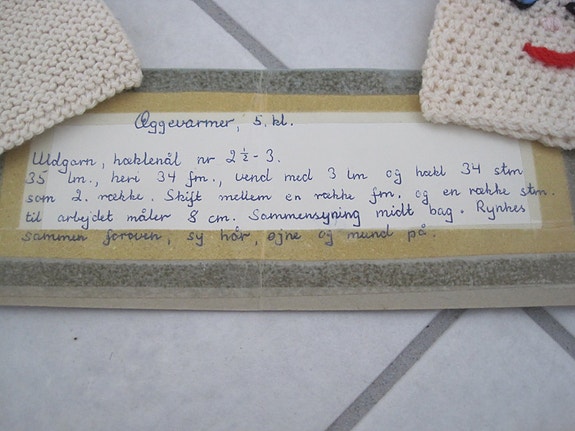 Æggevarmer, 5. kl.
Uldgarn, hæklenål nr 2 ½ - 3.
35 lm., heri 34 fm., vend med 3 lm og hækl 34 stm
som 2. række. Skift mellem en række fm. og en række stm.
til arbejdet måler 8 cm. Sammensyning midt bag. Rynkes
sammen foroven, sy hår, øjne og mund på.